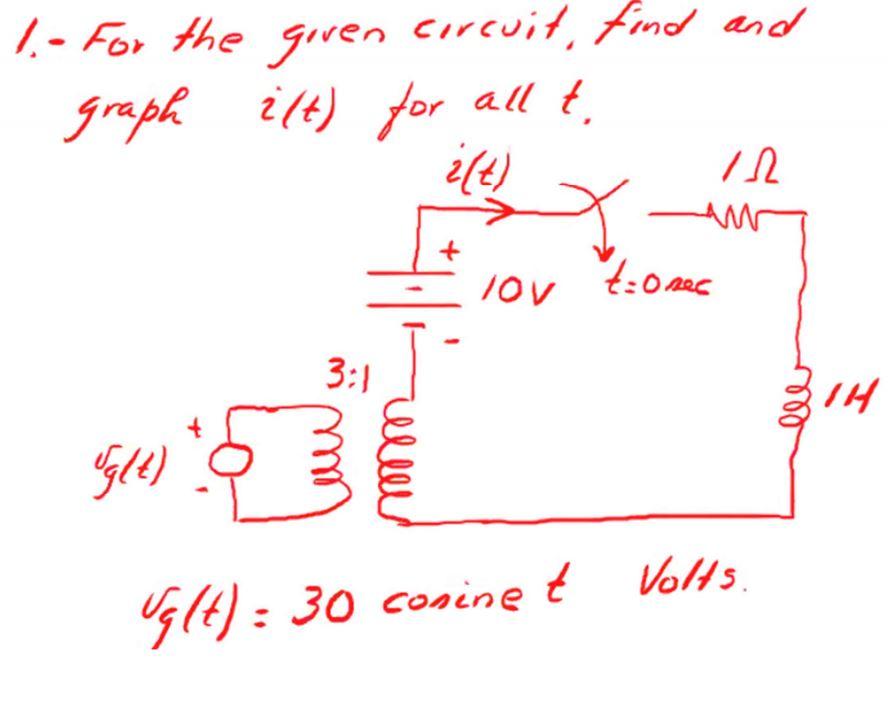 1.- For the given circuit, find and
graph i(t) for all t.
i(t)
1Ω
+
10V
t=0 sec
-
3:1
1H
+
vg(t)
-
vg(t) = 30 cosine t Volts.